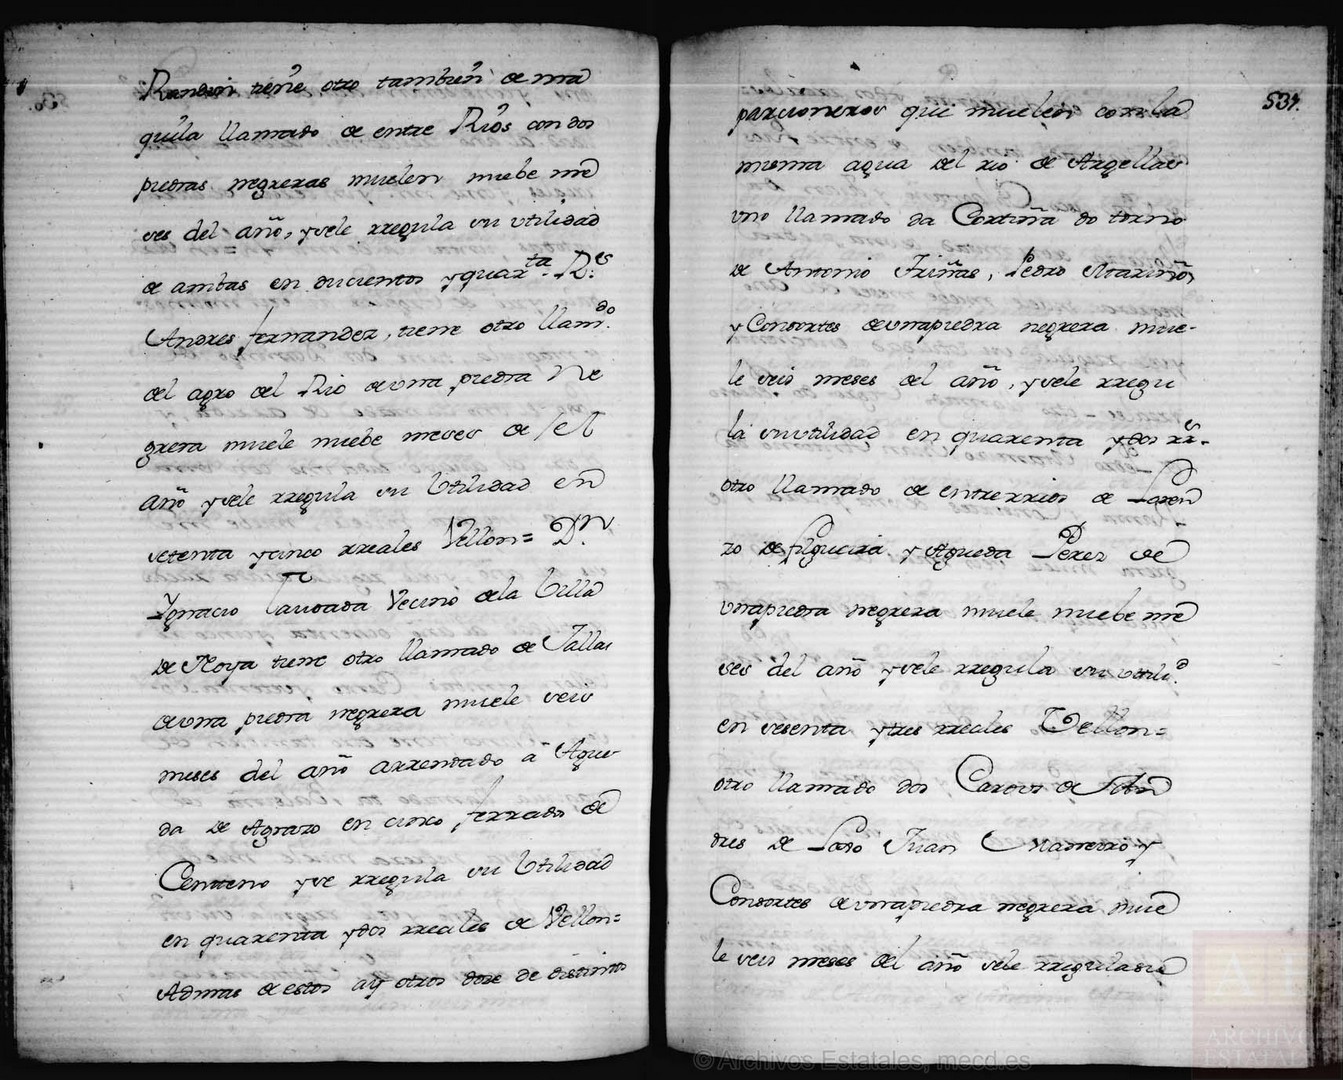 Randin tiene otro tambien de ma
quila llamado de entre Rios con dos
piedras negreras muelen nuebe me
ses del año, ysele rregula su utilidad
de ambas en ducientos yquarta Rs
Andres fernandez, tiene otro llamdo
del agro del Rio deuna piedra Ne
grera muele nuebe meses de el
año ysele rregula su Utilidad en
setenta ycinco rreales Vellon= Dn
Ygnacio Taboada Vecino dela Villa
de Noya tiene otro llamado de Tallas
deuna piedra negrera muele seis
meses del año arrendado a Ague-
da de Agrazo en cinco ferrados de
Centeno yse rregula su Utilidad
en quarenta ydos rreales de Vellon=
Admas destos ay otros doze de distintos
534.
parcioneros que muelen con la
misma agua del rio de Argellas
uno llamado da Cortiña do torno
de Antonio Friñas, Pedro Mariño,
y Consortes deunapiedra negrera mue-
le seis meses del año, ysele rregu
la suutilidad en quarenta ydos rrs-
otro llamado de entrerrios de Loren
zo de filgueira y Agueda Perez de
unapiedra negrera muele nuebe me
ses del año ysele rregula su utilid
en sesenta ytres rreales Vellon=
otro llamado dos Carovos de An
dres de Lado Juan Maneiro y
Consortes deunapiedra negrera mue
le seis meses del año sele rregulasu
© Archivos Estatales, mecd.es
AE
ARCHIVOS
ESTATALES